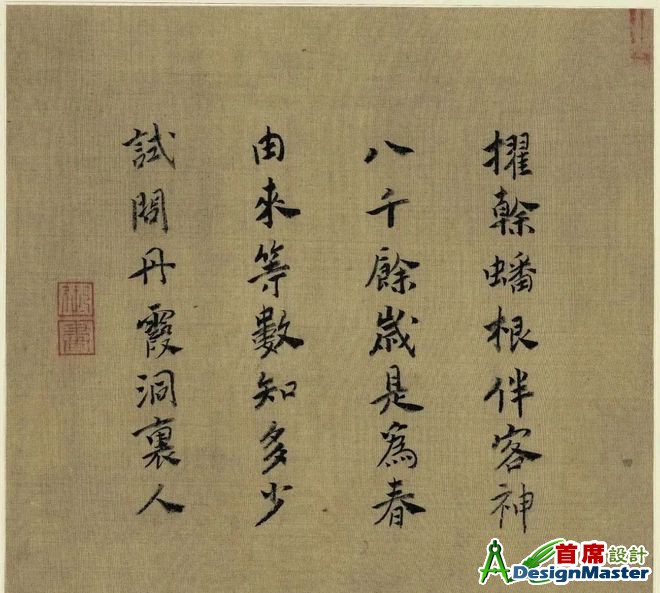 擢幹蟠根伴客神
八千餘歲是為春
由來等數知多少
試問丹霞洞裏人
御書
首席設計
DesignMaster